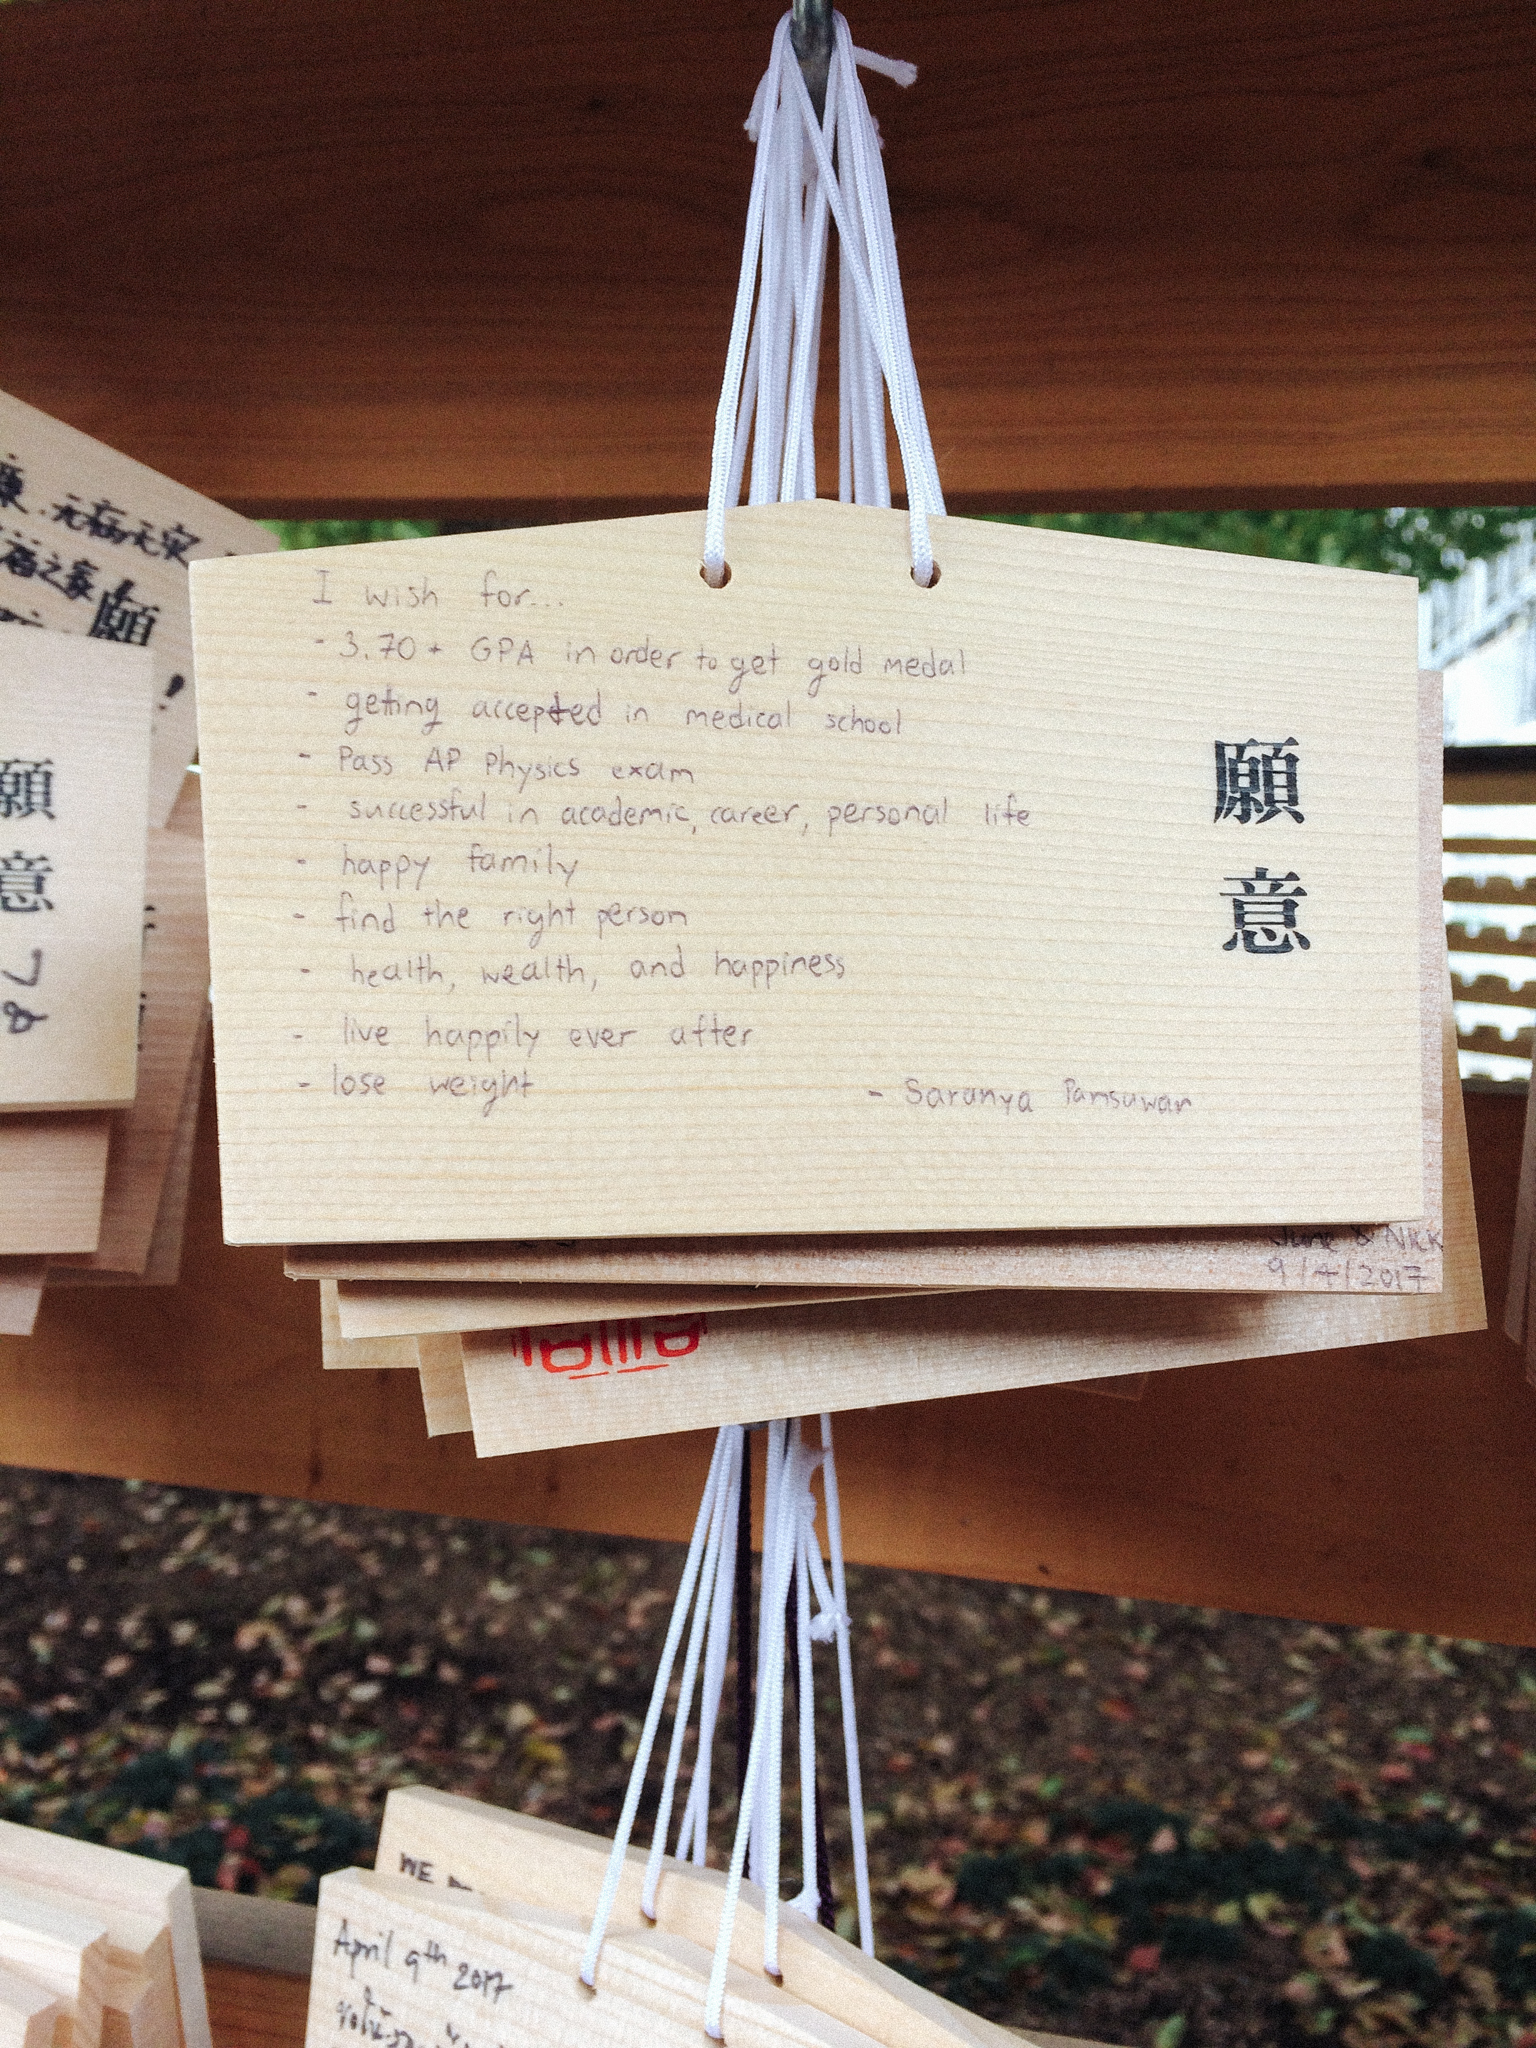 I wish for...
- 3.70+ GPA in order to get gold medal
- getting accepted in medical school
- Pass AP Physics exam
- successful in academic, career, personal life
- happy family
- find the right person
- health, wealth, and happiness
- live happily ever after
- lose weight
- Saranya Pansuwan
願意
June & Nick
9/4/2017
无病无灾
之家
願
!
願意
WE
April 9th 2017